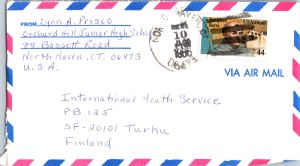 FROM Lynn A. Prisco
Orchard Hill Junior High School
88 Bassett Road
North Haven, CT. 06473
U.S.A.
10
06473
44
VIA AIR MAIL
International Youth Service
PB 125
SF-20101 Turku
Finland